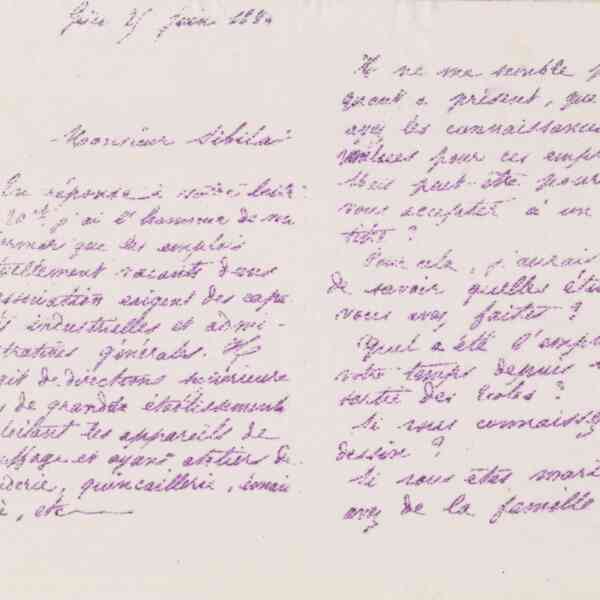 Guise 25 juin 188
Monsieur Sibilat
En réponse à votre lettre
j'ai l'honneur de
que les emplois
vacants dans
ssociation exigent des capa
és industrielles et admi-
stratives générales. Il
git de directions
de grands établissements
les appareils de
uffage et ayant ateliers de
derie, quincaillerie, émail
, etc
Il ne me semble p
quant à présent, que
ayez les connaissances
voulues pour ces emp
peut-être pour
vous accepter à un
titre ?
Pour cela, j'aurais
de savoir quelles étu
vous avez faites ?
Quel a été l'emp
votre temps depuis
sortie des Ecoles ?
Si vous connaissez
dessin ?
Si vous êtes mari
avez de la famille